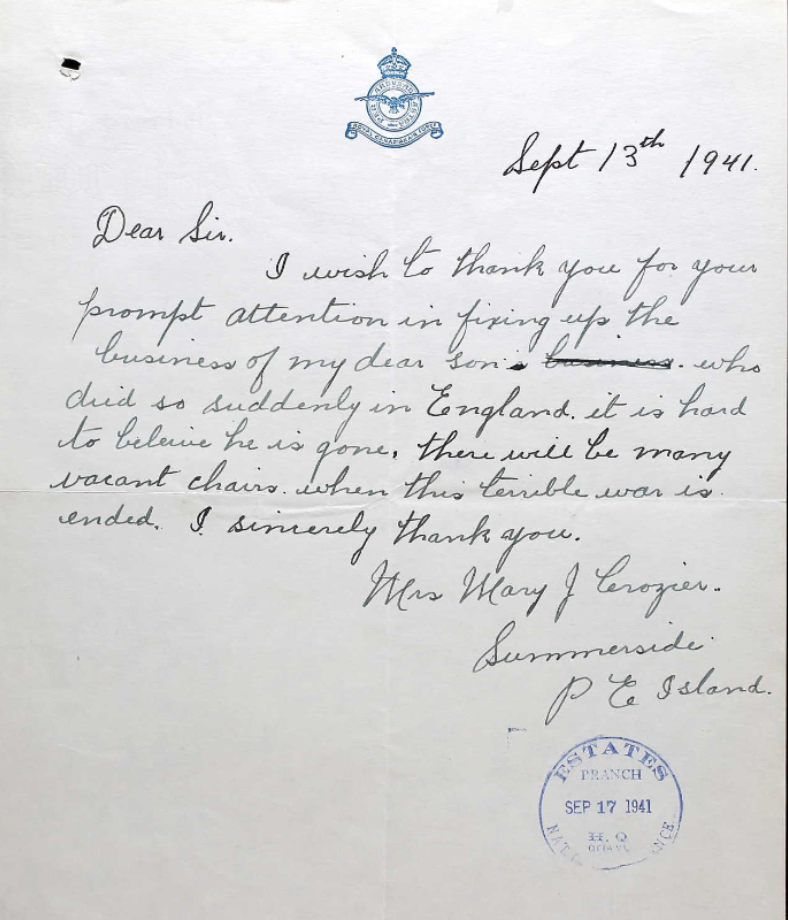 ROYAL CANADIAN AIR FORCE
Sept 13th 1941.
Dear Sir.
I wish to thank you for your
prompt attention in fixing up the
business of my dear son's business. who
died so suddenly in England. it is hard
to beleive he is gone. there will be many
vacant chairs. when this terrible war is
ended. I sincerely thank you.
Mrs Mary J Crozier.
Summerside
P E Island.
ESTATES
BRANCH
SEP 17 1941
H.Q.
OTTAWA